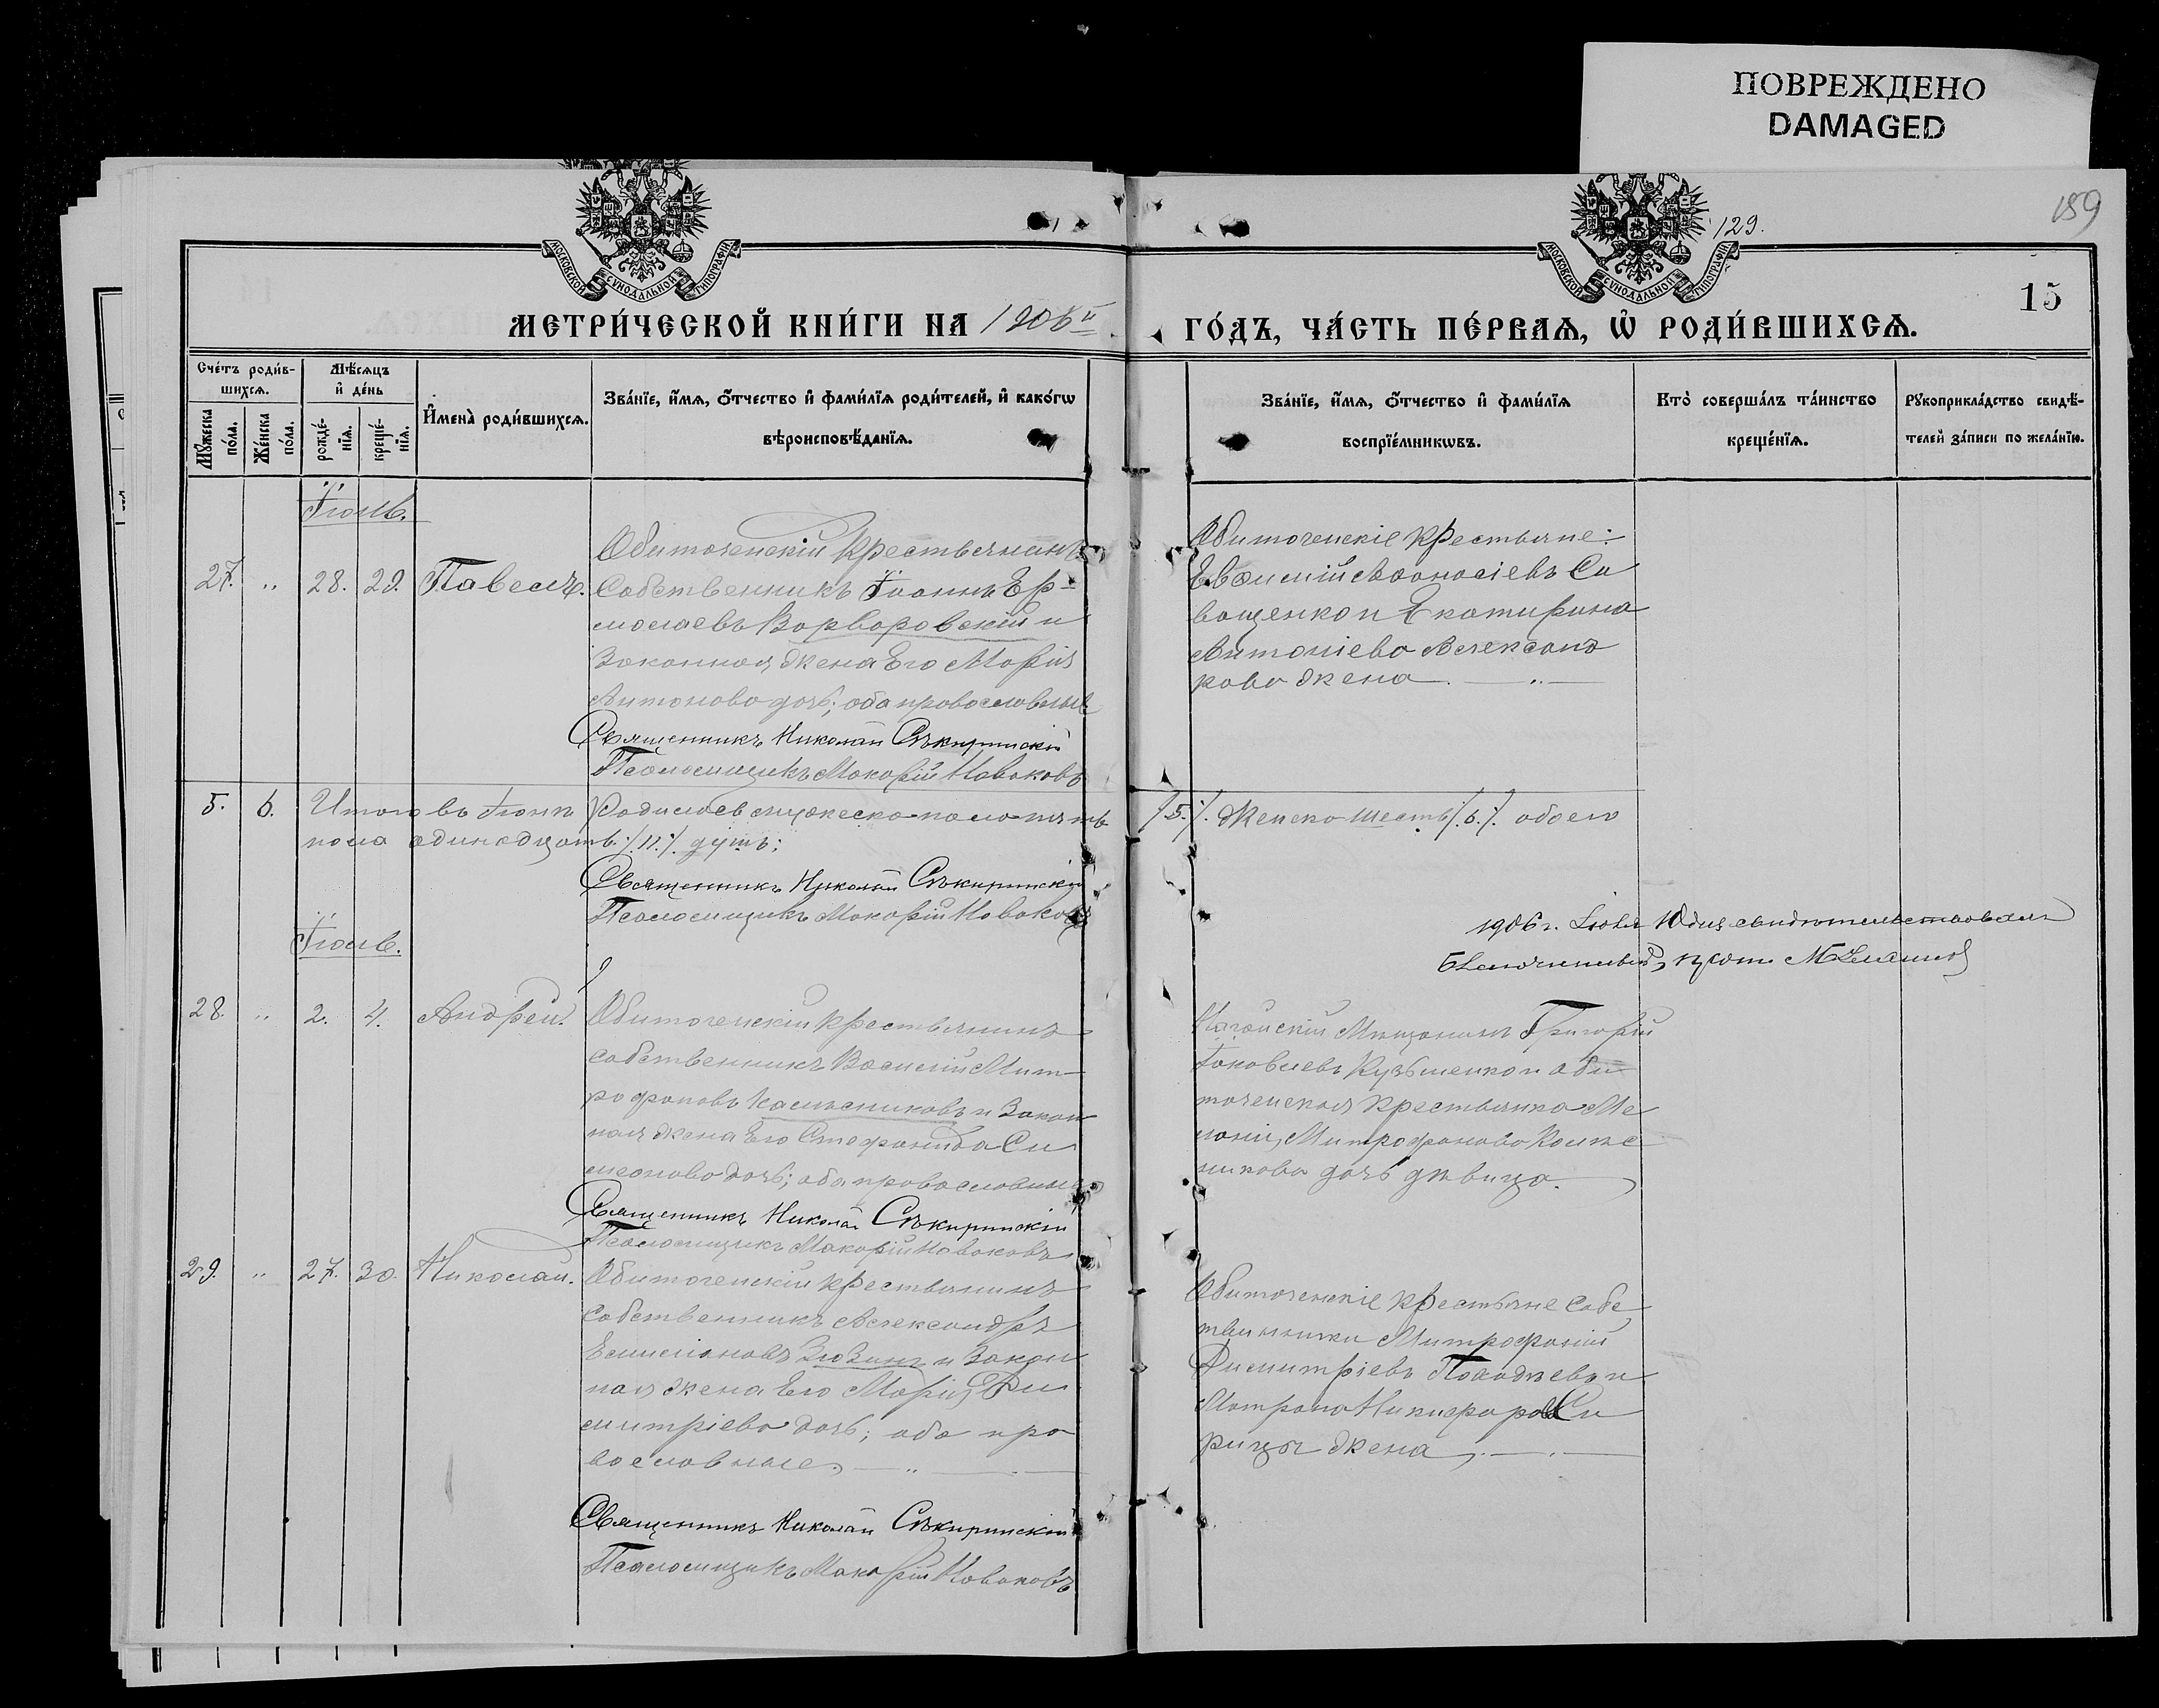 ПОВРЕЖДЕНО
DAMAGED
159
129.
15
МОСКОВСКОЙ СУНОДАЛЬНОЙ ТИПОГРАФІИ
МОСКОВСКОЙ СУНОДАЛЬНОЙ ТИПОГРАФІИ
МЕТРИ́ЧЕСКОЙ КНИ́ГИ НА 1906й
ГО́ДЪ, ЧА́СТЬ ПЕ́РВАѦ, Ѡ҆ РОДИ́ВШИХСѦ.
Сче́тъ роди́в-
шихсѧ.
Мꙋ́жеска по́ла.
Же́нска по́ла.
Мѣ́сѧцъ
и҆ де́нь
рожде́-нїѧ.
креще́-нїѧ.
И҆мена̀ роди́вшихсѧ.
Зва́нїе, и҆́мѧ, ѻ҆́тчество и҆ фами́лїѧ роди́телей, и҆ како́гѡ
вѣроисповѣ́данїѧ.
Зва́нїе, и҆́мѧ, ѻ҆́тчество и҆ фами́лїѧ
воспрїе́мникѡвъ.
Кто̀ соверша́лъ та́инство
креще́нїѧ.
Рꙋкоприкла́дство свидѣ́-
телей за́писи по жела́нїю.
Іюнь.
27. „ 28. 29. Павелъ.
Обиточенскій крестьянинъ
собственникъ Іоаннъ Ер-
молаевъ Варваровскій и
законная жена его Марія
Антонова дочь; оба православные
Священникъ Николай Съкиринскій
Псаломщикъ Макарій Новаковъ
Обиточенскіе крестьяне:
Евфимій Афанасіевъ Си
ващенко и Екатирина
Антоніева Александ
рова жена. — „ —
5. 6. Итого въ Іюнѣ родилось мужеска пола пять
/.5./. женска шесть /.6./. обоего
пола одинадцать /.11./. душъ;
Священникъ Николай Съкиринскій
Псаломщикъ Макарій Новаковъ
1906 г. Іюля 10 дня свидѣтельствовалъ
Благочинный, прот.
Іюль.
28. „ 2. 4. Андрей.
Обиточенскій крестьянинъ
собственникъ Василій Мит-
рофановъ Калѣсниковъ и закон
ная жена его Стефанида Си
меонова дочь; оба православные
Священникъ Николай Съкиринскій
Псаломщикъ Макарій Новаковъ
Ногайскій мѣщанинъ Григорій
Іаковлевъ Кузьменко и оби
точенская крестьянка Ме
ланія Митрофанова Колѣс
никова дочь дѣвица.
29. „ 27. 30. Николай.
Обиточенскій крестьянинъ
собственникъ Александръ
Емиліановъ Зюзинъ и закон
ная жена его Марія Ди
митріева дочь; оба пра
вославные. — „ —
Священникъ Николай Съкиринскій
Псаломщикъ Макарій Новаковъ
Обиточенскіе крестьяне собс
твинники Митрофаній
Димитріевъ и
Матрона Никифорова
жена